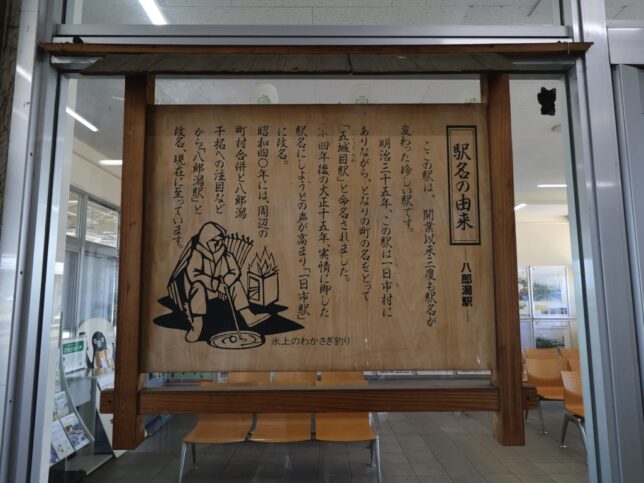 駅名の由来
八郎潟駅
ここの駅は、開業以来三度も駅名が
変わった珍しい駅です。
明治三十五年、この駅は一日市村に
ありながら、となりの町の名をとって
「五城目駅」と命名されました。
二十四年後の大正十五年、実情に即した
駅名にしようとの声が高まり「一日市駅」
に改名。
昭和四〇年には、周辺の
町村合併と八郎潟
干拓への注目など
から「八郎潟駅」と
改名、現在に至っています。
氷上のわかさぎ釣り